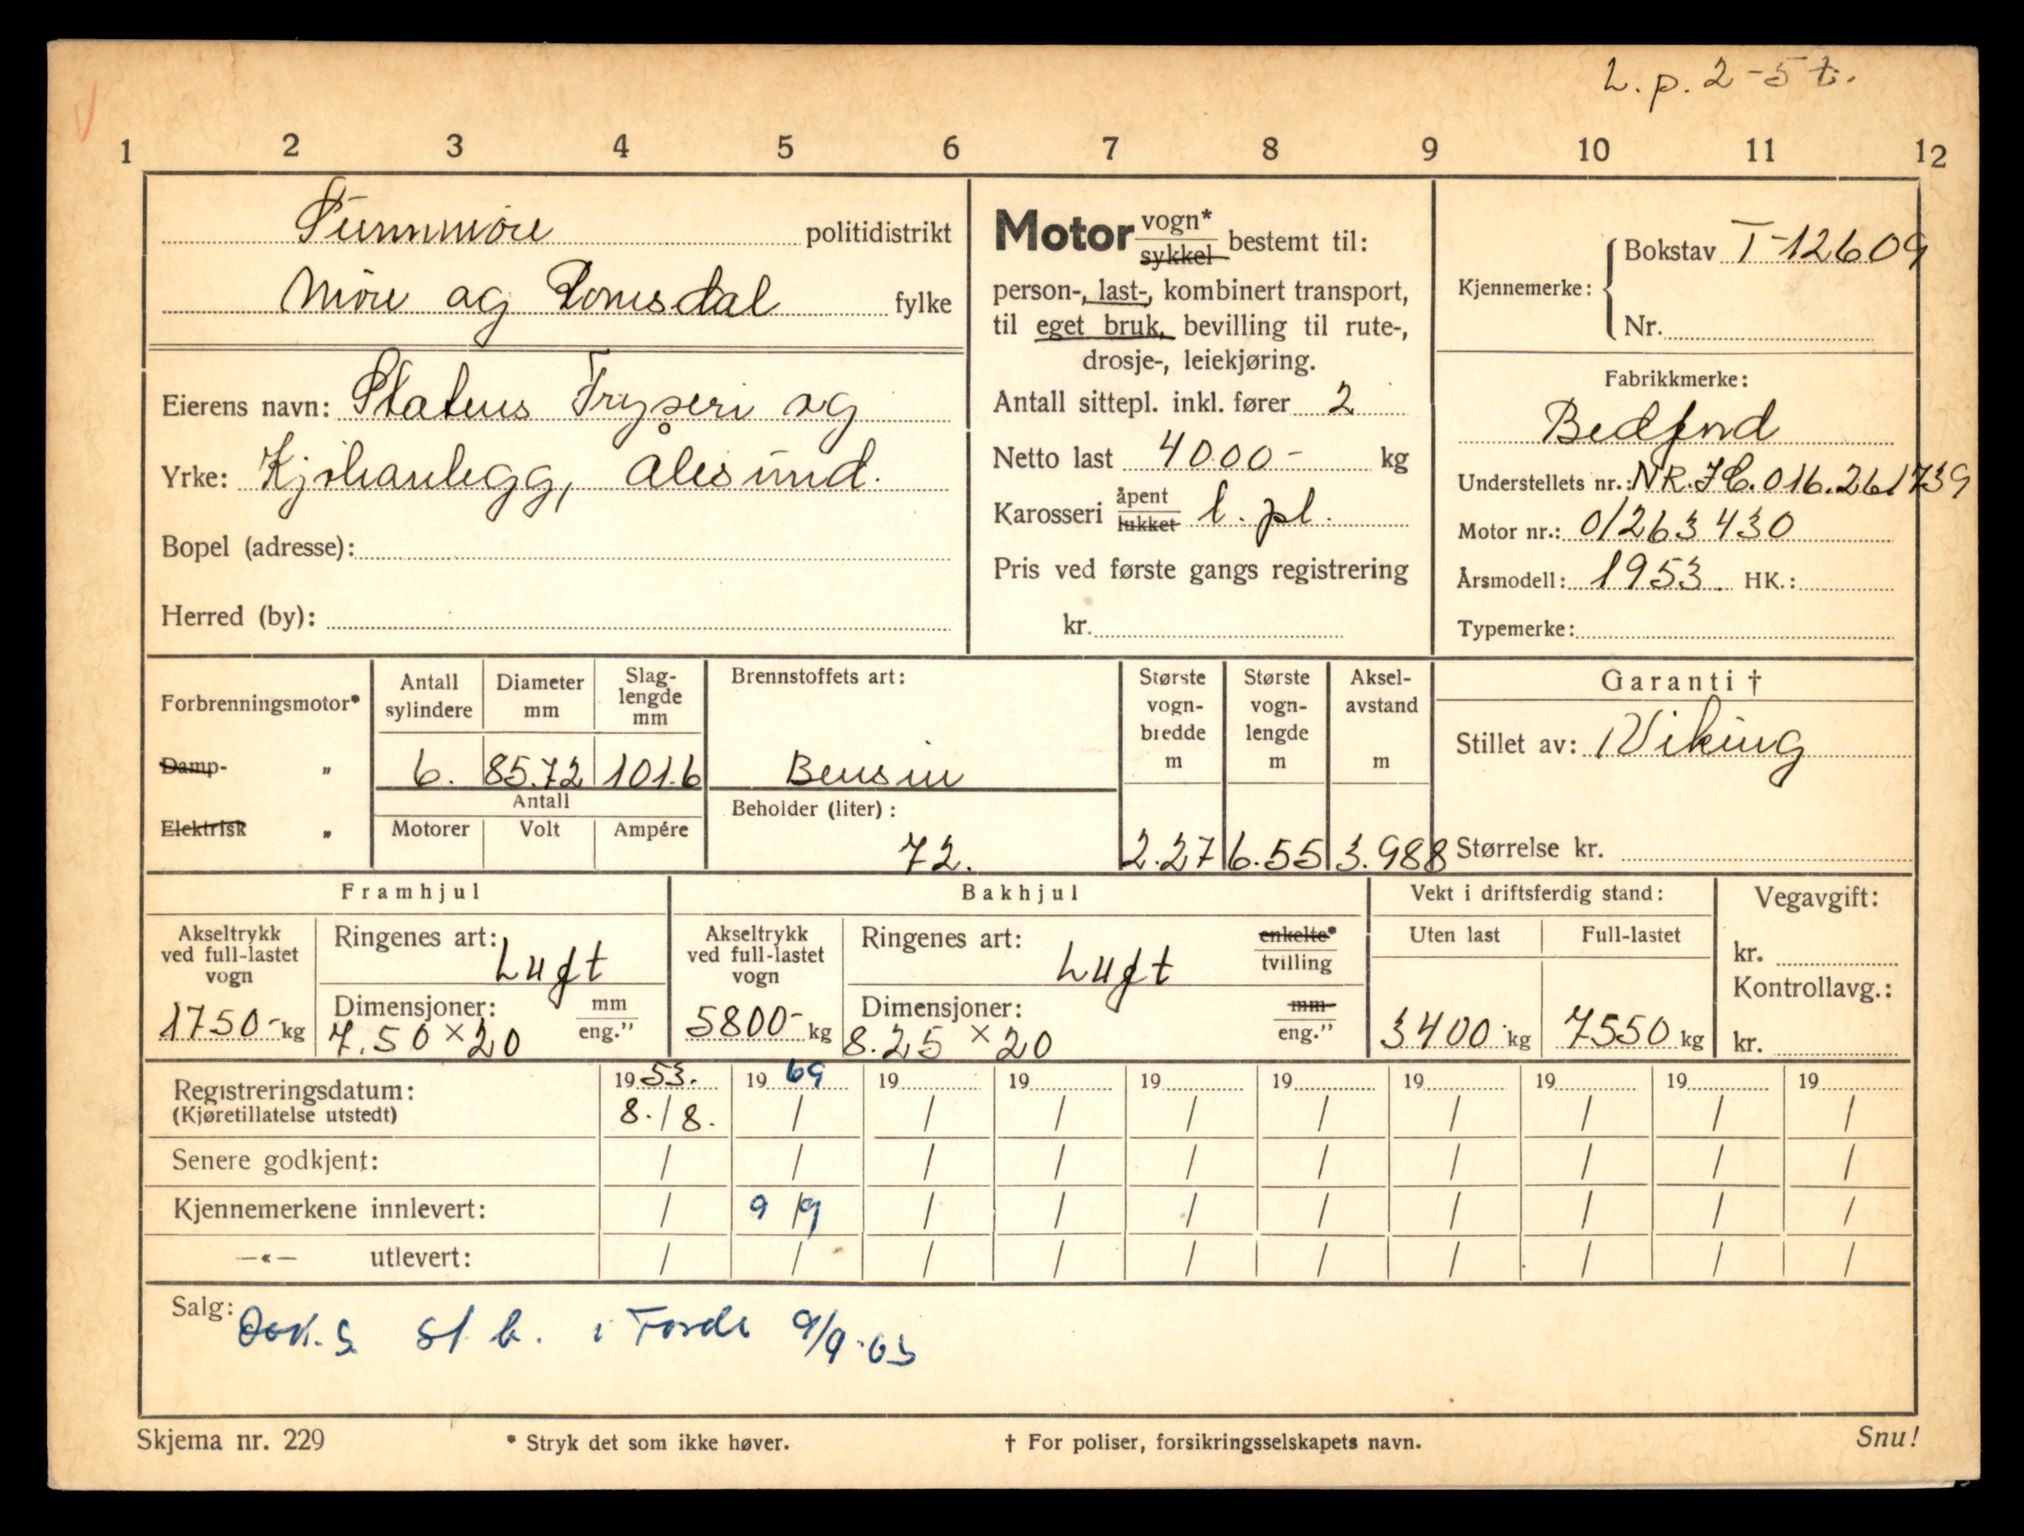 L.p. 2-5 t.
1 2 3 4 5 6 7 8 9 10 11 12
Sunnmøre politidistrikt
Møre og Romsdal fylke
Eierens navn: Statens Fryseri og
Yrke: Kjøleanlegg, Ålesund.
Bopel (adresse):
Herred (by):
Motor vogn* sykkel bestemt til:
person-, last-, kombinert transport,
til eget bruk, bevilling til rute-,
drosje-, leiekjøring.
Antall sittepl. inkl. fører 2
Netto last 4000- kg
Karosseri åpent lukket l. pl.
Pris ved første gangs registrering
kr.
Kjennemerke: Bokstav T-12609
Nr.
Fabrikkmerke:
Bedford
Understellets nr.: NR.JC.016.261739
Motor nr.: 01263430
Årsmodell: 1953. HK.:
Typemerke:
Forbrenningsmotor*
Damp- „
Elektrisk „
Antall sylindere
6.
Diameter mm
85.72
Slaglengde mm
101.6
Antall
Motorer Volt Ampére
Brennstoffets art:
Bensin
Beholder (liter):
72.
Største vogn-bredde m
2.27
Største vogn-lengde m
6.55
Aksel-avstand m
3.988
Garanti †
Stillet av: Viking
Størrelse kr.
Framhjul
Akseltrykk ved full-lastet vogn
1750- kg
Ringenes art: Luft
Dimensjoner: mm eng.”
7.50 × 20
Bakhjul
Akseltrykk ved full-lastet vogn
5800- kg
Ringenes art: Luft enkelte* tvilling
Dimensjoner: mm eng.”
8.25 × 20
Vekt i driftsferdig stand:
Uten last Full-lastet
3400 kg 7550 kg
Vegavgift:
kr.
Kontrollavg.:
kr.
Registreringsdatum: 1953. 1969 19 19 19 19 19 19 19 19
(Kjøretillatelse utstedt) 8./8. / / / / / / / / /
Senere godkjent: / / / / / / / / / /
Kjennemerkene innlevert: / 9/9 / / / / / / / /
—«— utlevert: / / / / / / / / / /
Salg: st b. i Førde 9/9-
Skjema nr. 229 * Stryk det som ikke høver. † For poliser, forsikringsselskapets navn. Snu!